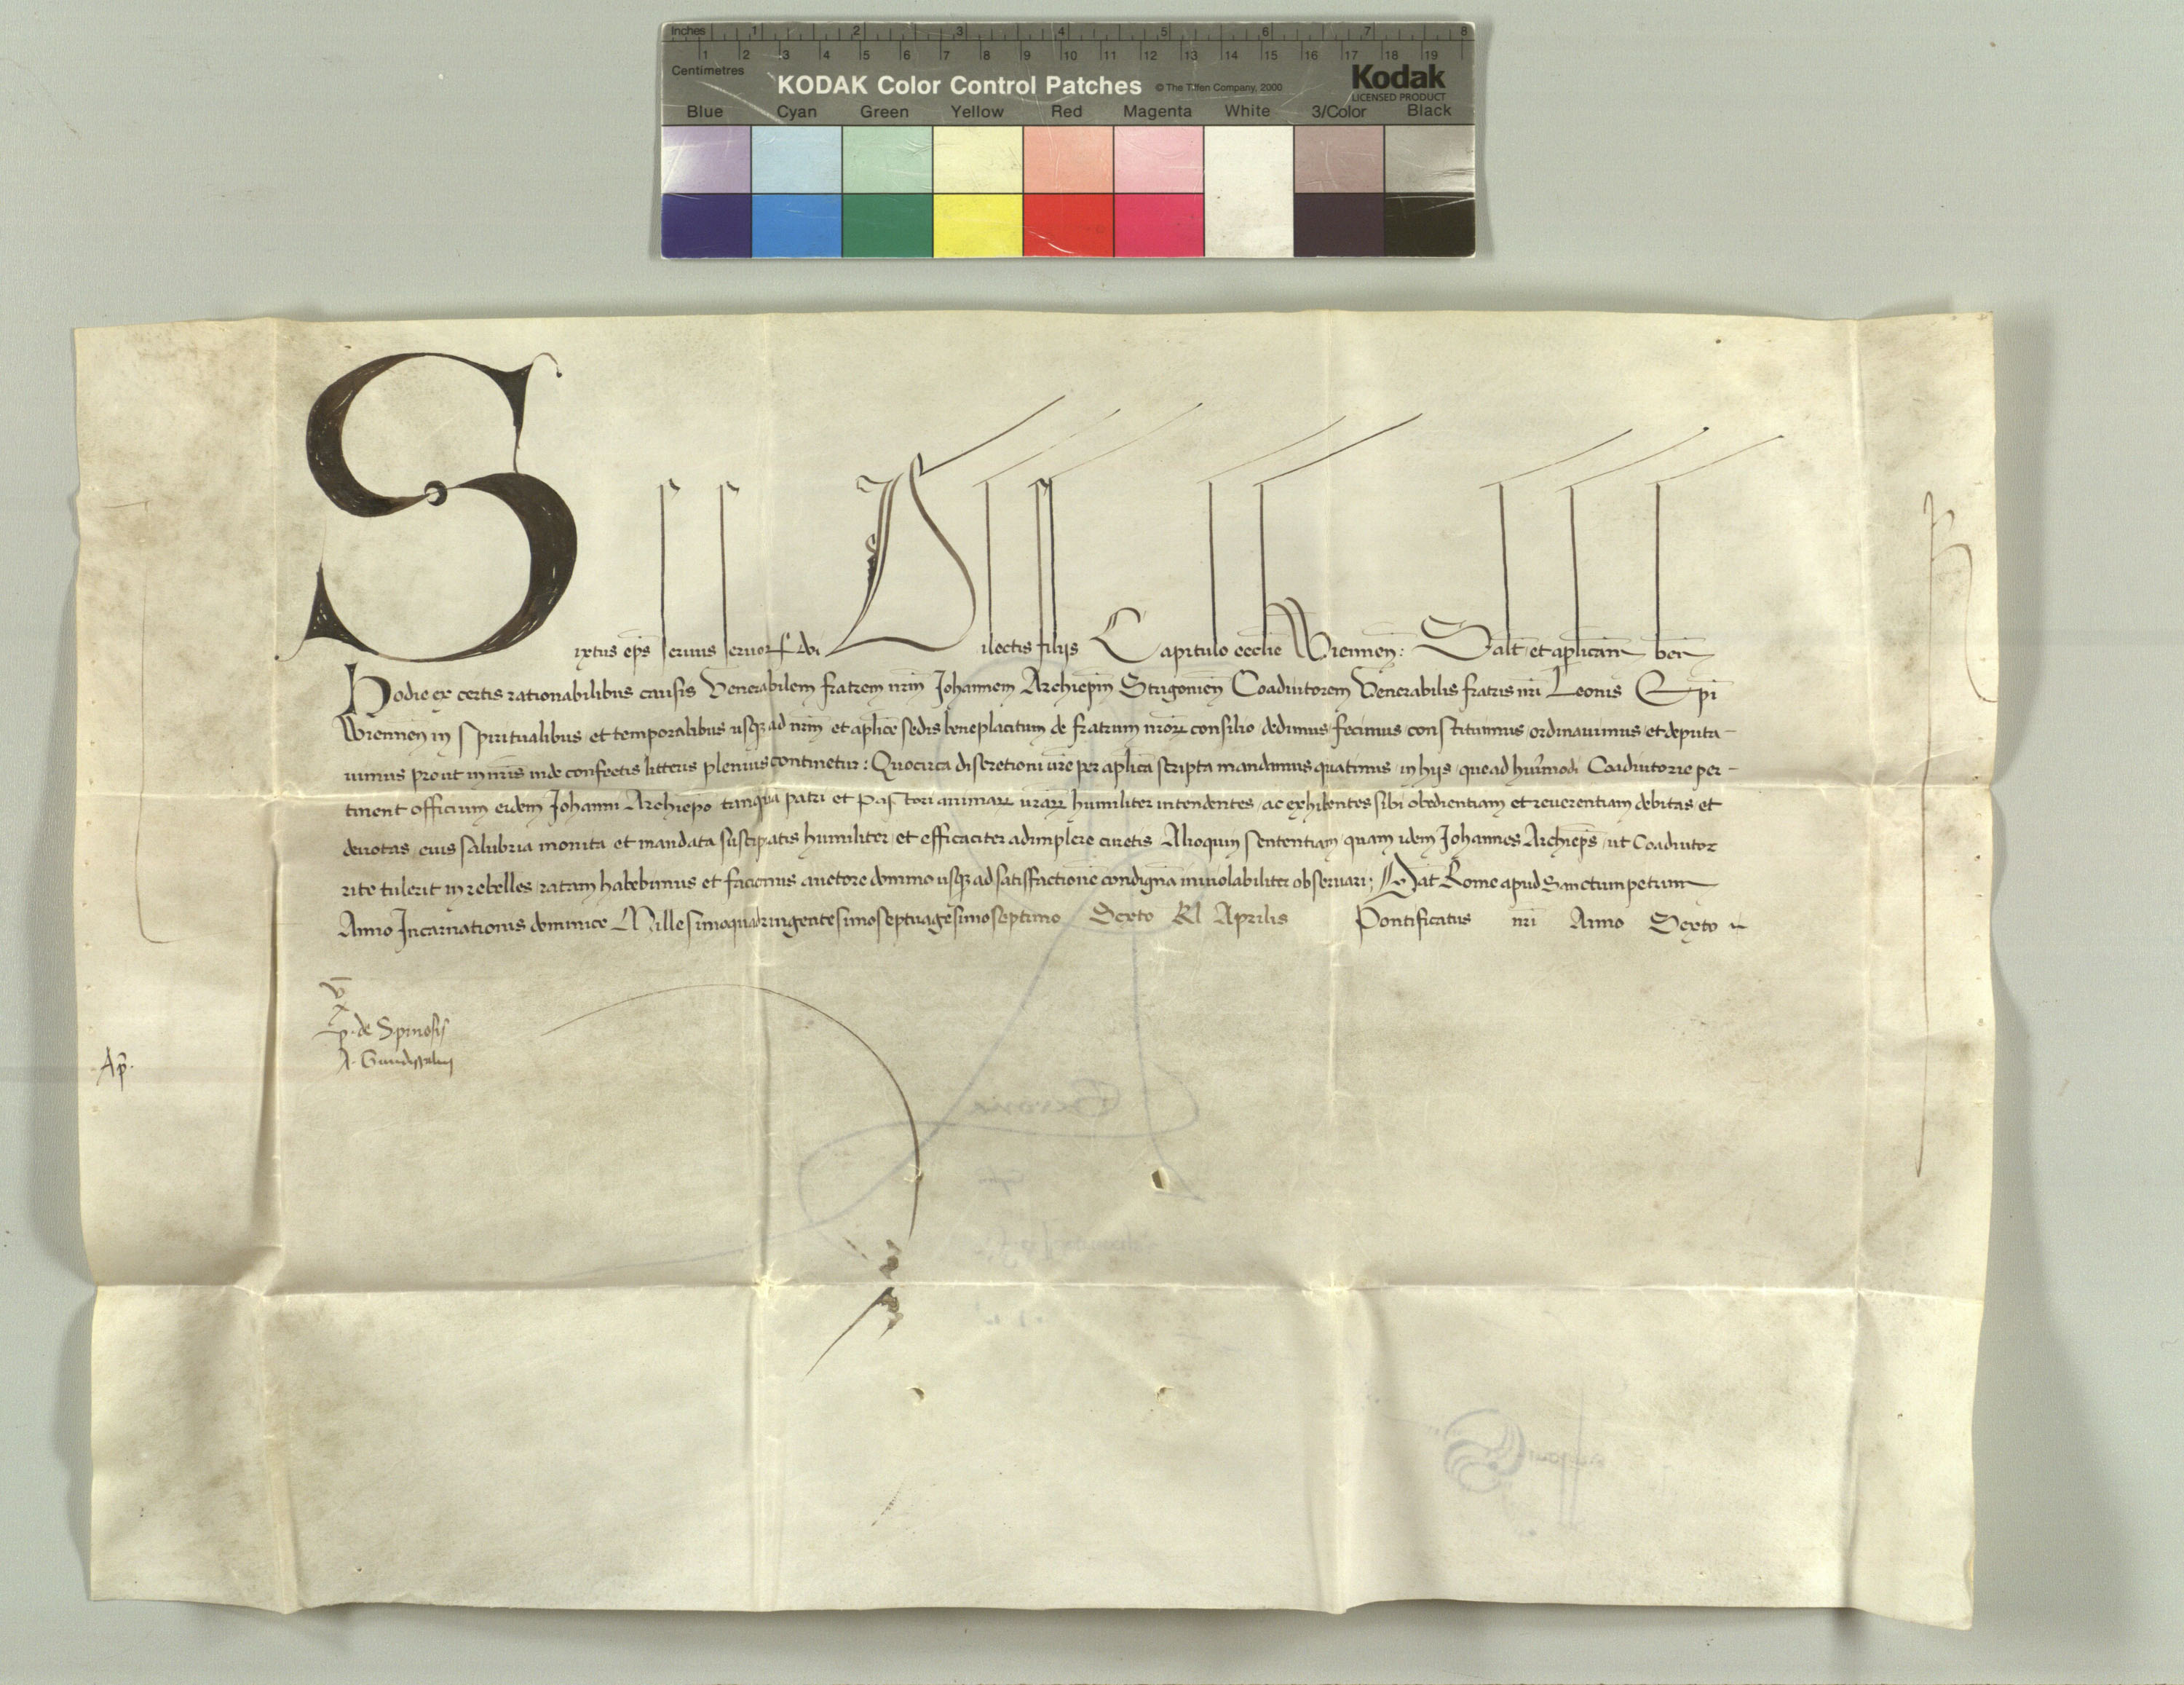 Inches 1 2 3 4 5 6 7 8
1 2 3 4 5 6 7 8 9 10 11 12 13 14 15 16 17 18 19
Centimetres
KODAK Color Control Patches © The Tiffen Company, 2000 Kodak
LICENSED PRODUCT
Blue Cyan Green Yellow Red Magenta White 3/Color Black
Sixtus ep̄s servus servoꝝ dei Dilectis filijs Capitulo eccl̄ie Wiennen̄: Salt̄ et ap̄licam̄ ben̄
Hodie ex certis rationabilibus causis Venerabilem fratrem nr̄m Johannem Archiep̄m Strigonien̄ Coadiutorem Venerabilis fratris nr̄i Leonis Ep̄i
Wiennen̄ in spiritualibus et temporalibus usqꝫ ad nr̄m et ap̄lice sedis beneplacitum de fratrum nr̄oꝝ consilio dedimus fecimus constituimus ordinauimus et deputa-
uimus prout in nr̄is inde confectis litteris plenius continetur: Quocirca discretioni vr̄e per ap̄lica scripta mandamus quatinus in hijs que ad hui͛modi Coadiutorie per-
tinent officium eidem Johanni Archiep̄o tanquā patri et pastori animaꝝ vr̄aꝝ humiliter intendentes ac exhibentes sibi obedientiam et reuerentiam debitas et
deuotas eius salubria monita et mandata suscipiatis humiliter et efficaciter adimplere curetis Alioquin sententiam quam idem Johannes Archiep̄s ut Coadiutor
rite tulerit in rebelles ratam habebimus et faciemus auctore domino usqꝫ ad satisfactionē condignā inuiolabiliter obseruari; Dat̄ Rome apud Sanctum petrum
Anno Incarnationis dominice Millesimoquadringentesimoseptuagesimoseptimo Sexto Kl̄ Aprilis Pontificatus nr̄i Anno Sexto
p. de Spinosis
Ap̄.